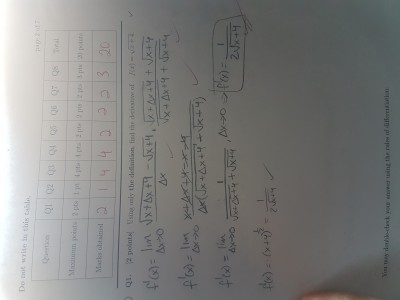 page 2 of 7
Do not write in this table.
Question Q1 Q2 Q3 Q4 Q5 Q6 Q7 Q8 Total
Maximum points 2 pts 1 pt 4 pts 4 pts 2 pts 2 pts 2 pts 3 pts 20 points
Marks obtained 2 1 4 4 2 2 2 3 20
Q1. [2 points] Using only the definition, find the derivative of f(x) = √x+4
f'(x) = lim Δx→0 √x+Δx+4 - √x+4 / Δx · √x+Δx+4 + √x+4 / √x+Δx+4 + √x+4
f'(x) = lim Δx→0 x+Δx+4-x-4 / Δx(√x+Δx+4 + √x+4)
f'(x) = lim Δx→0 1 / √x+Δx+4 + √x+4 , Δx→0 → f'(x) = 1 / 2√x+4
f'(x) = (x+4)^½ = 1 / 2√x+4
You may double-check your answer using the rules of differentiation